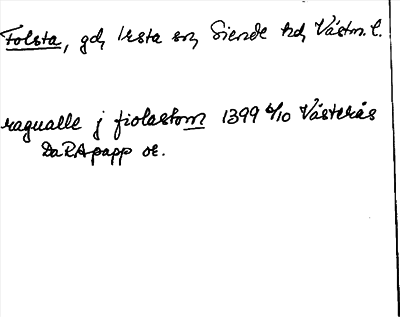 Folsta, gd, Irsta sn, Siende hd, Västm. l.
ragualle j fiolastom 1399 6/10 Västerås
DaRA papp or.